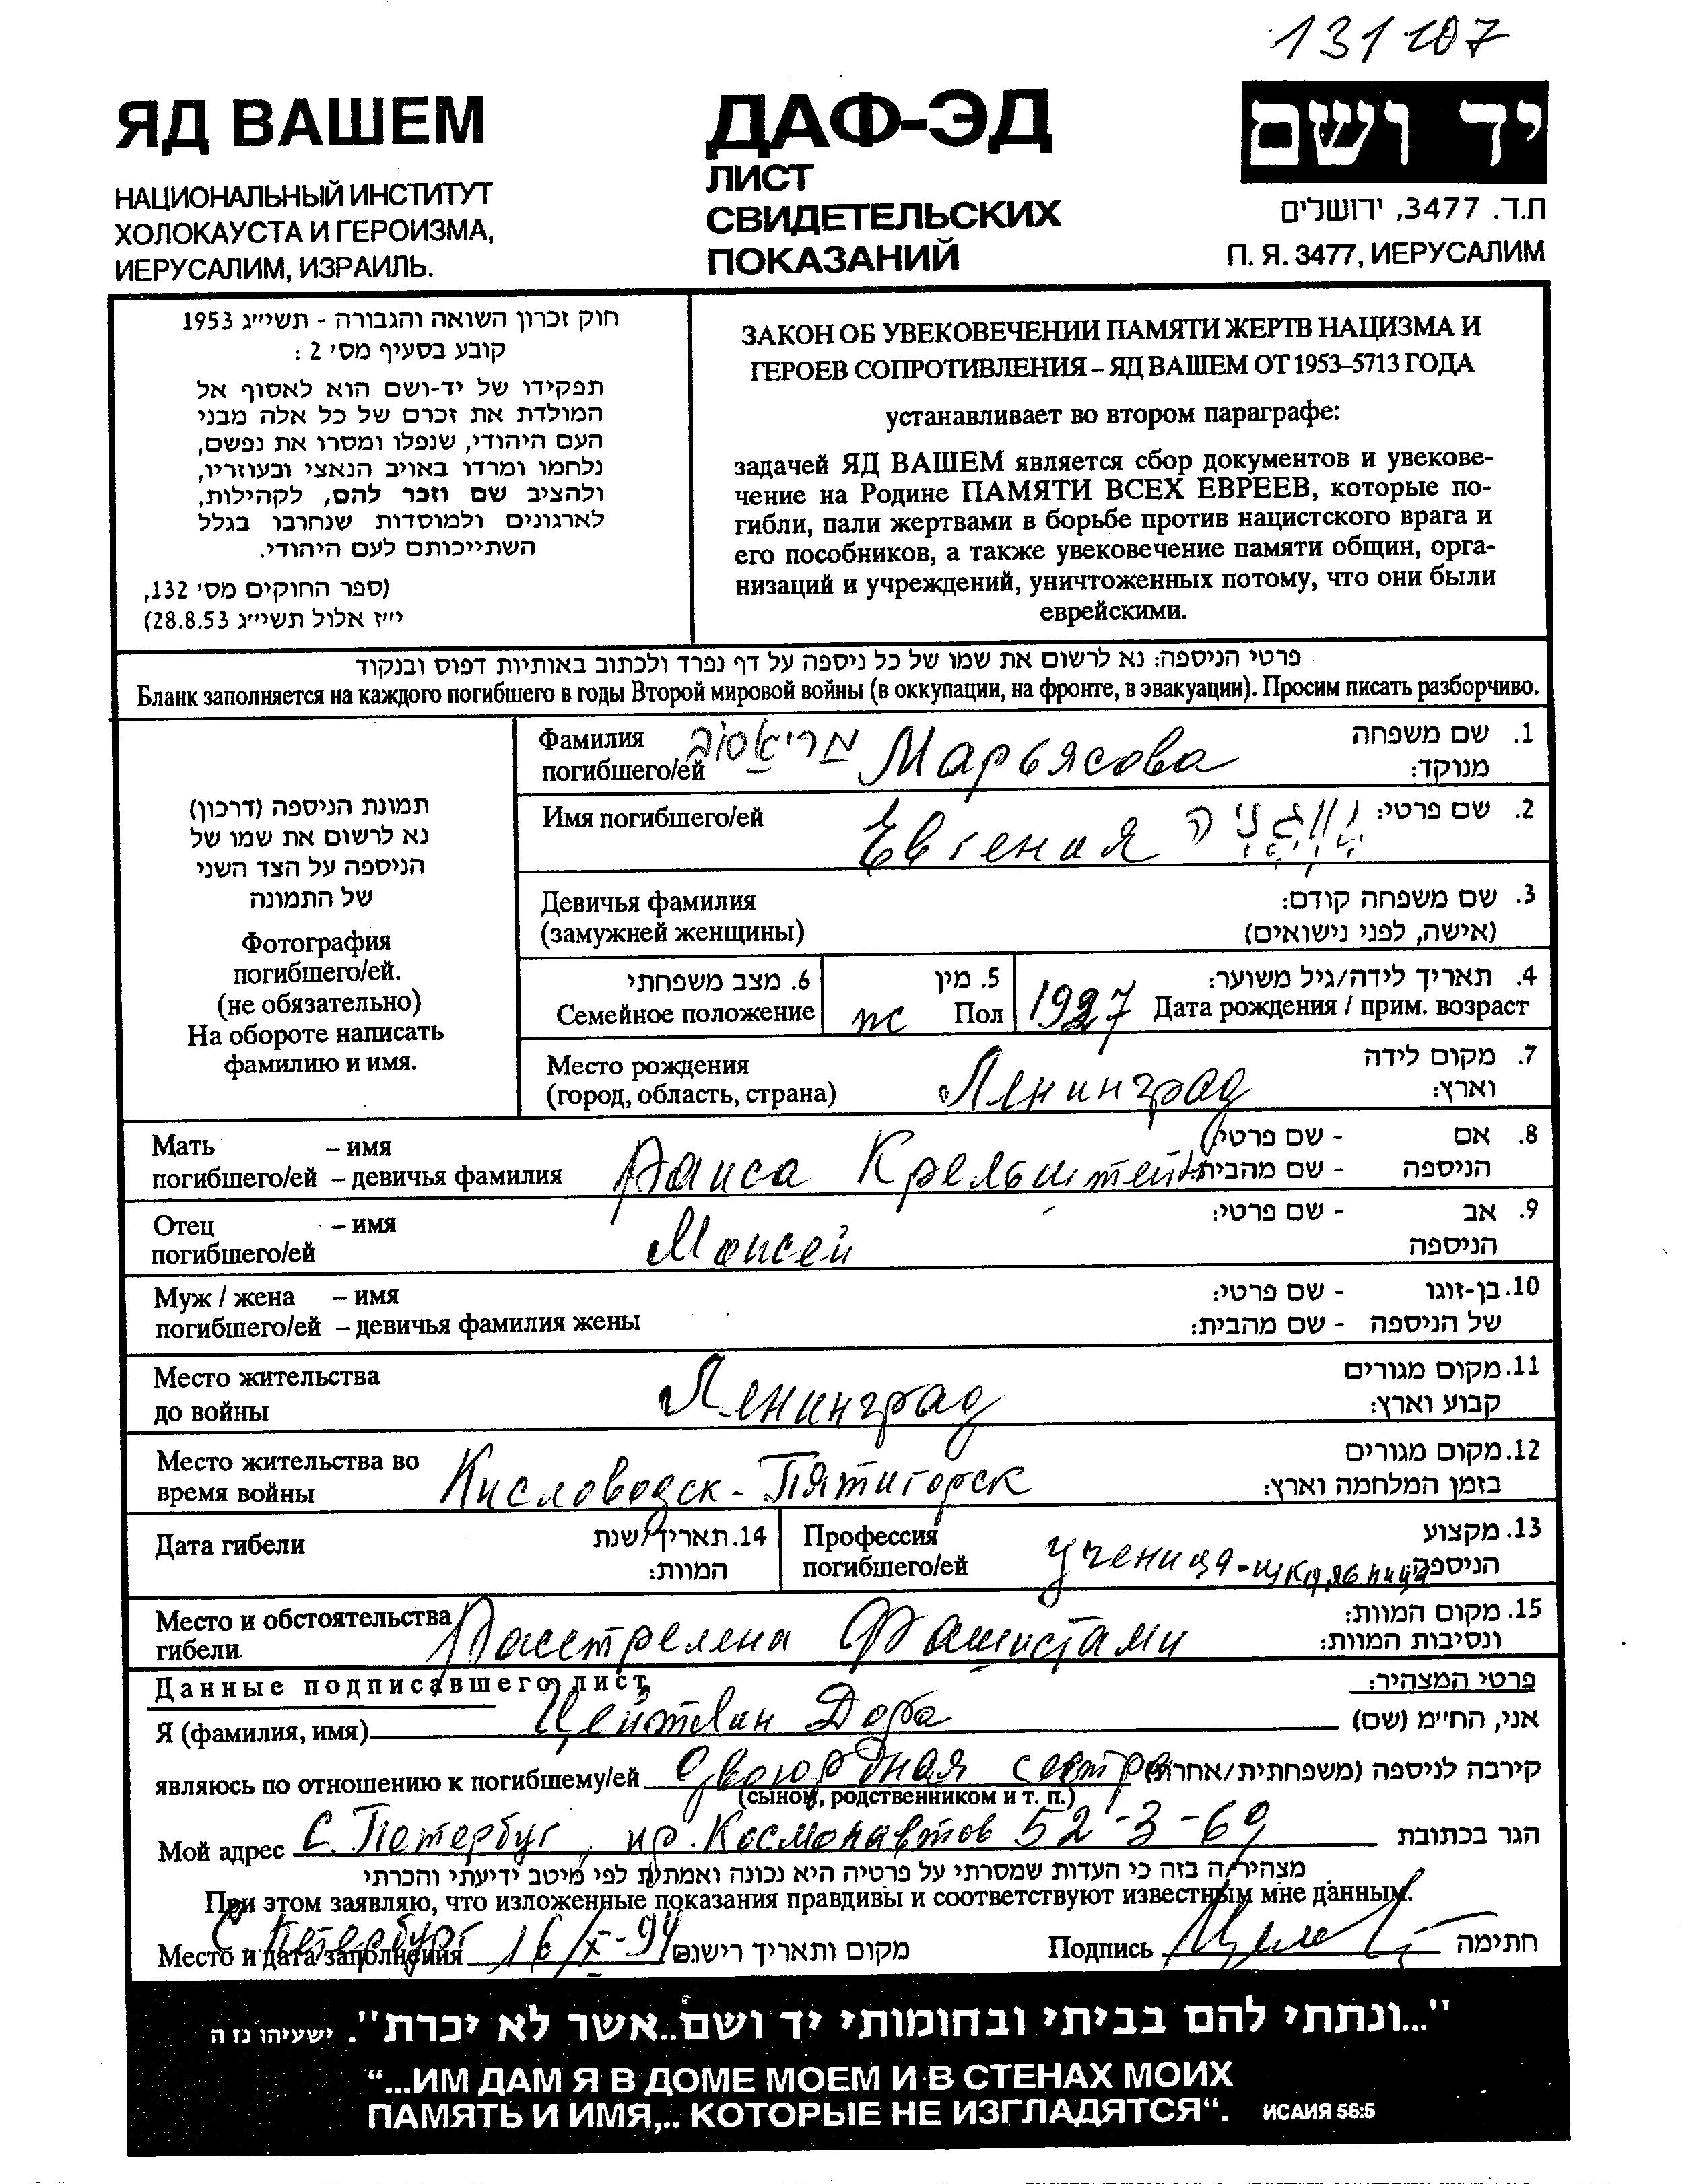 131107
ЯД ВАШЕМ
НАЦИОНАЛЬНЫЙ ИНСТИТУТ
ХОЛОКАУСТА И ГЕРОИЗМА,
ИЕРУСАЛИМ, ИЗРАИЛЬ.
ДАФ-ЭД
ЛИСТ
СВИДЕТЕЛЬСКИХ
ПОКАЗАНИЙ
יד ושם
ת.ד. 3477, ירושלים
П. Я. 3477, ИЕРУСАЛИМ
חוק זכרון השואה והגבורה - תשי״ג 1953
קובע בסעיף מס׳ 2 :
תפקידו של יד-ושם הוא לאסוף אל
המולדת את זכרם של כל אלה מבני
העם היהודי, שנפלו ומסרו את נפשם,
נלחמו ומרדו באויב הנאצי ובעוזריו,
ולהציב שם וזכר להם, לקהילות,
לארגונים ולמוסדות שנחרבו בגלל
השתייכותם לעם היהודי.
(ספר החוקים מס׳ 132,
י״ז אלול תשי״ג 28.8.53)
ЗАКОН ОБ УВЕКОВЕЧЕНИИ ПАМЯТИ ЖЕРТВ НАЦИЗМА И
ГЕРОЕВ СОПРОТИВЛЕНИЯ – ЯД ВАШЕМ ОТ 1953–5713 ГОДА
устанавливает во втором параграфе:
задачей ЯД ВАШЕМ является сбор документов и увекове-
чение на Родине ПАМЯТИ ВСЕХ ЕВРЕЕВ, которые по-
гибли, пали жертвами в борьбе против нацистского врага и
его пособников, а также увековечение памяти общин, орга-
низаций и учреждений, уничтоженных потому, что они были
еврейскими.
פרטי הניספה: נא לרשום את שמו של כל ניספה על דף נפרד ולכתוב באותיות דפוס ובנקוד
Бланк заполняется на каждого погибшего в годы Второй мировой войны (в оккупации, на фронте, в эвакуации). Просим писать разборчиво.
תמונת הניספה (דרכון)
נא לרשום את שמו של
הניספה על הצד השני
של התמונה
Фотография
погибшего/ей.
(не обязательно)
На обороте написать
фамилию и имя.
Фамилия
погибшего/ей
מריאסוב Марьясова
1. שם משפחה
מנוקד:
Имя погибшего/ей Евгения
2. שם פרטי:
Девичья фамилия
(замужней женщины)
3. שם משפחה קודם:
(אישה, לפני נישואים)
6. מצב משפחתי
Семейное положение
5. מין
ж Пол
4. תאריך לידה/גיל משוער:
1927 Дата рождения / прим. возраст
Место рождения
(город, область, страна)
Ленинград
7. מקום לידה
וארץ:
Мать – имя
погибшего/ей – девичья фамилия
Раиса Крельштейн
8. אם - שם פרטי
הניספה - שם מהבית:
Отец – имя
погибшего/ей
Моисей
9. אב - שם פרטי:
הניספה
Муж / жена – имя
погибшего/ей – девичья фамилия жены
10. בן-זוגו - שם פרטי:
של הניספה - שם מהבית:
Место жительства
до войны
Ленинград
11. מקום מגורים
קבוע וארץ:
Место жительства во
время войны
Кисловодск - Пятигорск
12. מקום מגורים
בזמן המלחמה וארץ:
Дата гибели
14. תאריך/שנת
המוות:
Профессия
погибшего/ей
ученица-школьница
13. מקצוע
הניספה
Место и обстоятельства
гибели
Расстрелена Фашистами
15. מקום המוות:
ונסיבות המוות:
Данные подписавшего лист
פרטי המצהיר:
Я (фамилия, имя) Цейтлин Дора אני, הח״מ (שם)
являюсь по отношению к погибшему/ей двоюродная сестра קירבה לניספה (משפחתית/אחרת)
(сыном, родственником и т. п.)
Мой адрес С. Петербург, пр. Космонавтов 52-3-69 הגר בכתובת
מצהיר/ה בזה כי העדות שמסרתי על פרטיה היא נכונה ואמתית לפי מיטב ידיעתי והכרתי
При этом заявляю, что изложенные показания правдивы и соответствуют известным мне данным.
Место и дата заполнения С Петербург 16/X-94 מקום ותאריך רישום Подпись חתימה
"...ונתתי להם בביתי ובחומותי יד ושם..אשר לא יכרת". ישעיהו נז ה
“...ИМ ДАМ Я В ДОМЕ МОЕМ И В СТЕНАХ МОИХ
ПАМЯТЬ И ИМЯ,.. КОТОРЫЕ НЕ ИЗГЛАДЯТСЯ“. ИСАИЯ 56:5